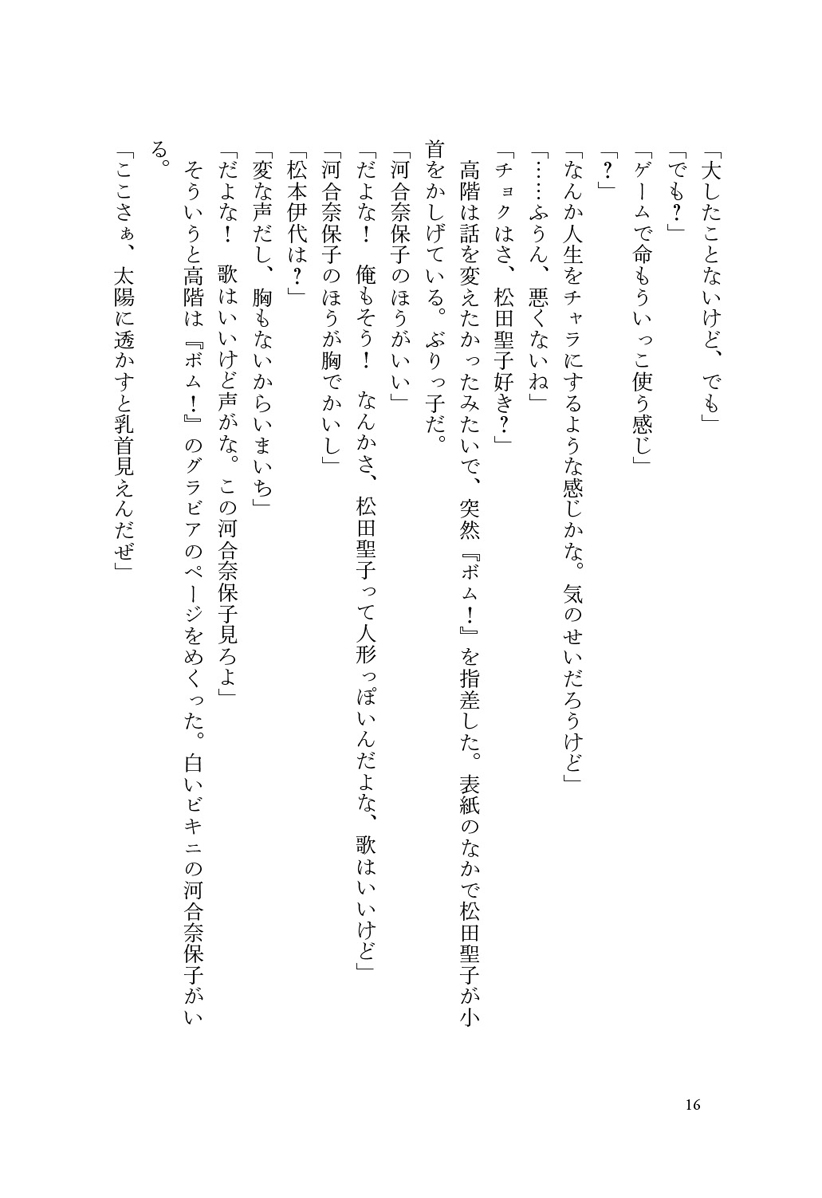 「大したことないけど、でも」
「でも？」
「ゲームで命もういっこ使う感じ」
「？」
「なんか人生をチャラにするような感じかな。気のせいだろうけど」
「……ふうん、悪くないね」
「チョクはさ、松田聖子好き？」
　高階は話を変えたかったみたいで、突然『ボム！』を指差した。表紙のなかで松田聖子が小
首をかしげている。ぶりっ子だ。
「河合奈保子のほうがいい」
「だよな！　俺もそう！　なんかさ、松田聖子って人形っぽいんだよな、歌はいいけど」
「河合奈保子のほうが胸でかいし」
「松本伊代は？」
「変な声だし、胸もないからいまいち」
「だよな！　歌はいいけど声がな。この河合奈保子見ろよ」
　そういうと高階は『ボム！』のグラビアのページをめくった。白いビキニの河合奈保子がい
る。
「ここさぁ、太陽に透かすと乳首見えんだぜ」
16